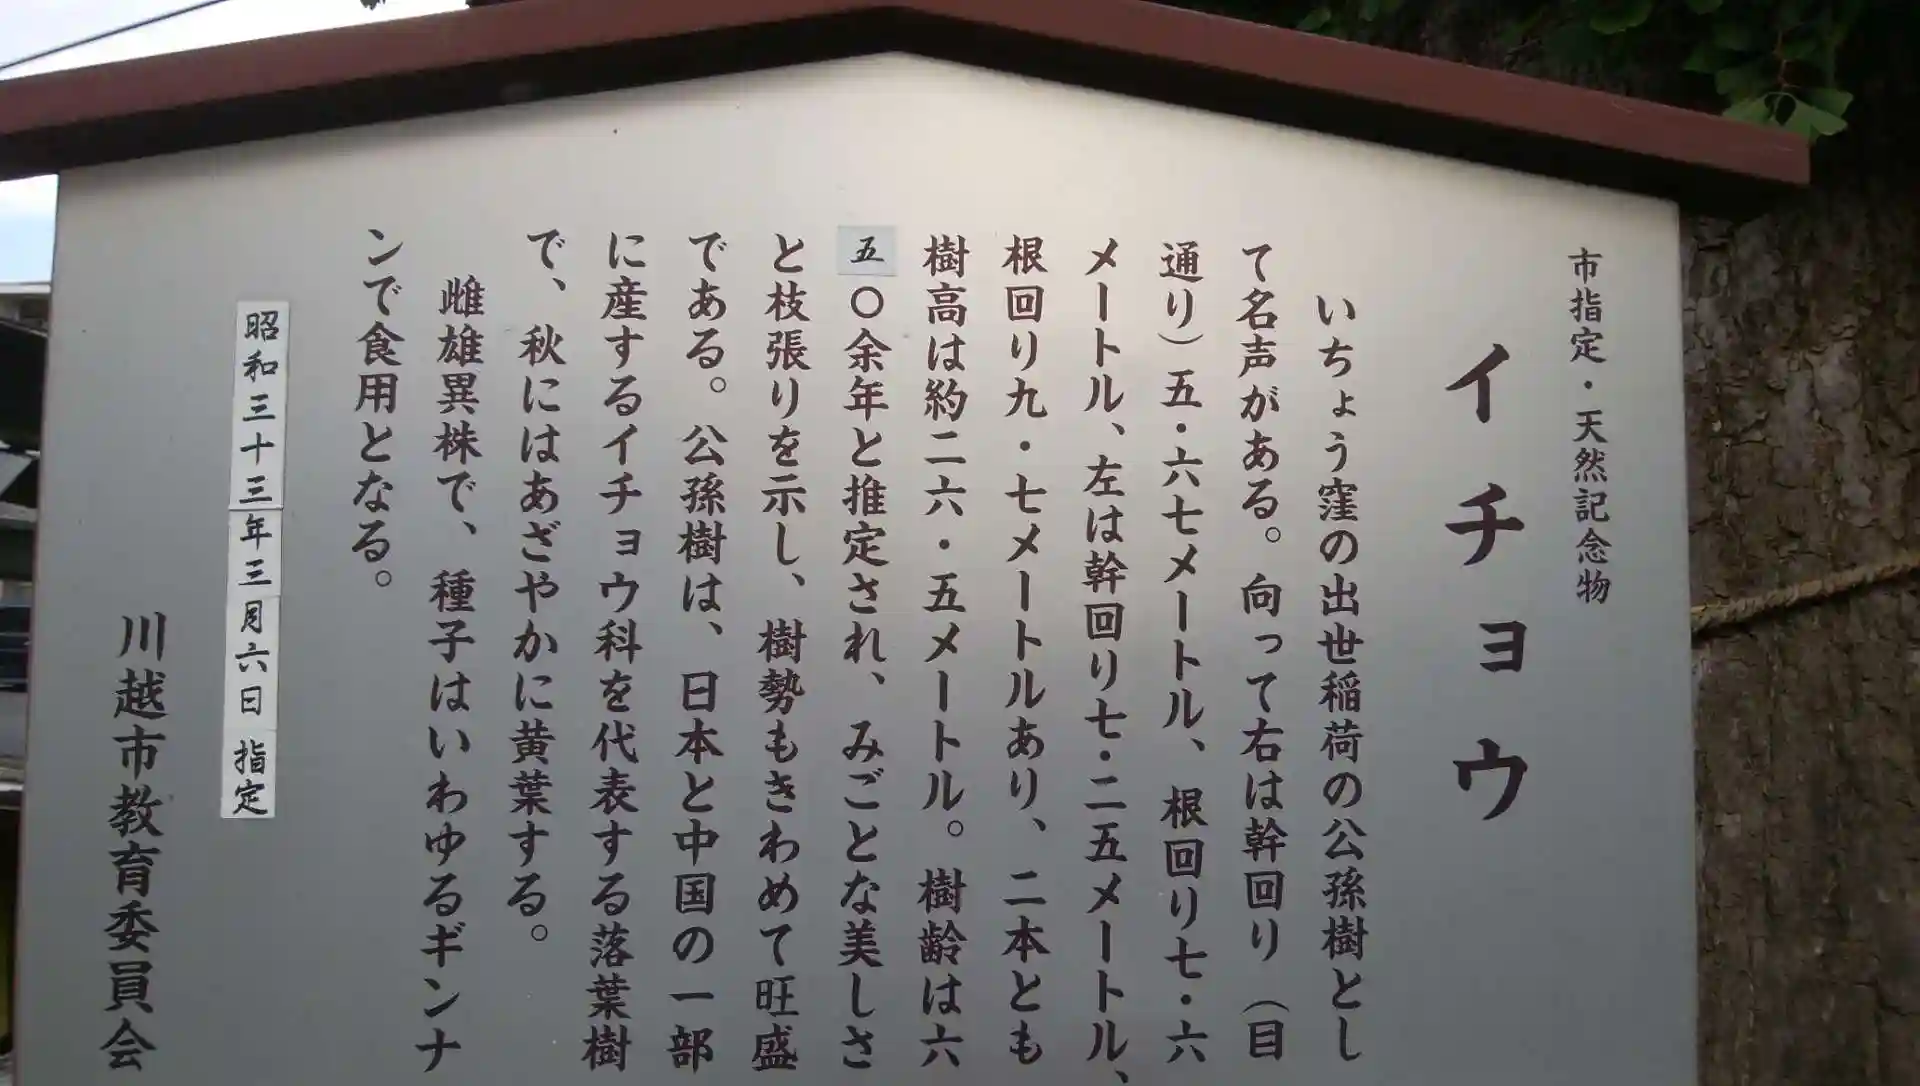 市指定・天然記念物
イチョウ
いちょう窪の出世稲荷の公孫樹とし
て名声がある。向って右は幹回り（目
通り）五・六七メートル、根回り七・六
メートル、左は幹回り七・二五メートル、
根回り九・七メートルあり、二本とも
樹高は約二六・五メートル。樹齢は六
五〇余年と推定され、みごとな美しさ
と枝張りを示し、樹勢もきわめて旺盛
である。公孫樹は、日本と中国の一部
に産するイチョウ科を代表する落葉樹
で、秋にはあざやかに黄葉する。
雌雄異株で、種子はいわゆるギンナ
ンで食用となる。
昭和三十三年三月六日指定
川越市教育委員会